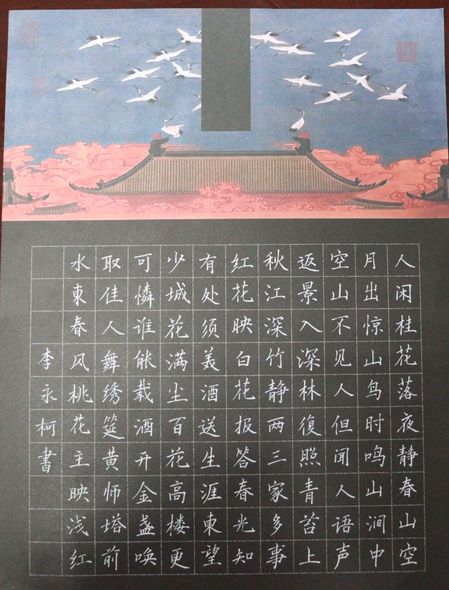 人闲桂花落夜静春山空
月出惊山鸟时鸣山涧中
空山不见人但闻人语声
返景入深林復照青苔上
秋江深竹静两三家多事
红花映白花报答春光知
有处须美酒送生涯東望
少城花满尘百花高楼更
可憐谁能载酒开金盏唤
取佳人舞绣筵黄师塔前
水東春风桃花主映浅红
李永柯書